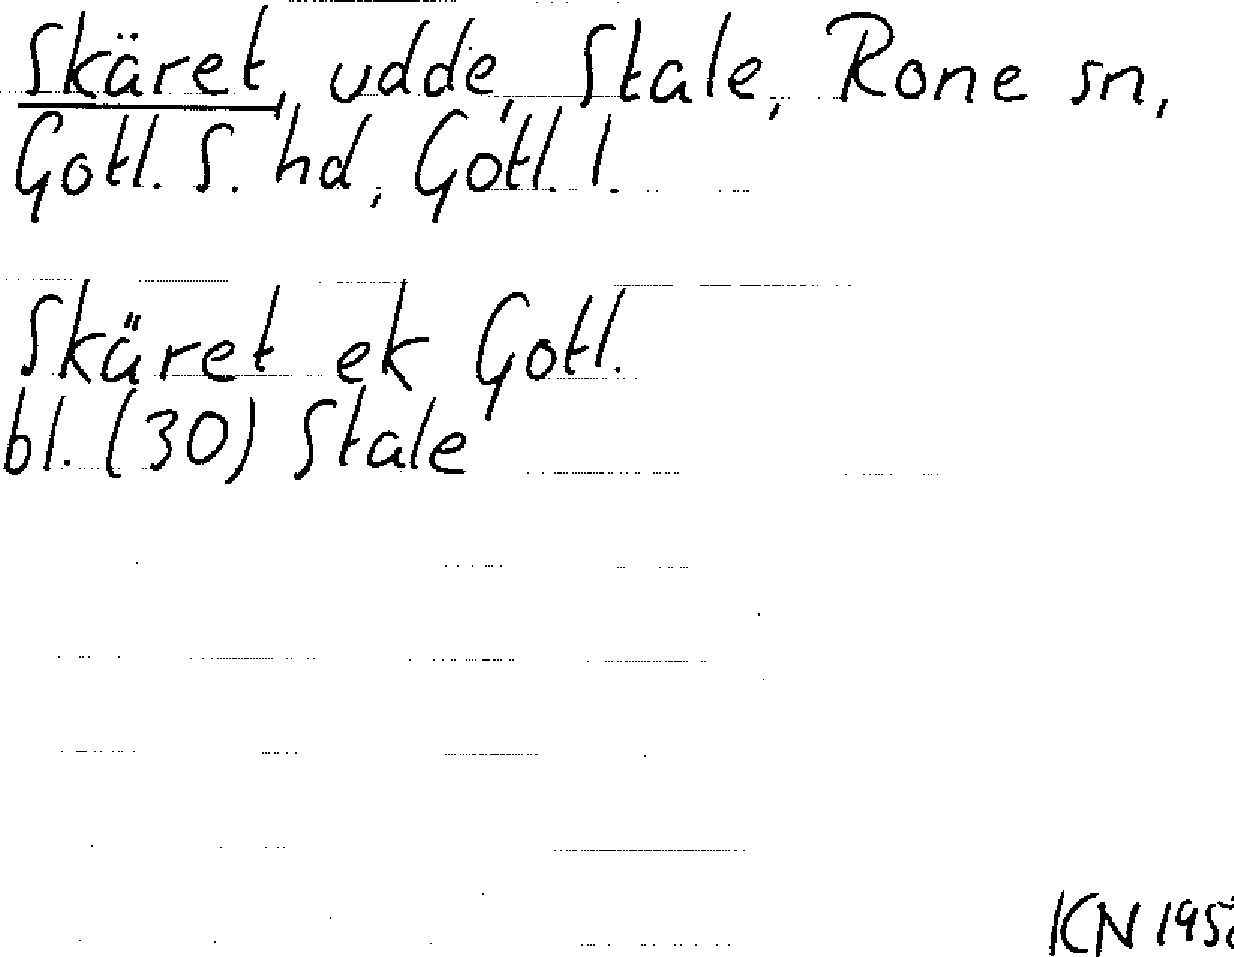 Skäret, udde, Stale, Rone sn,
Gotl. S. hd, Gotl. l.
Skäret ek Gotl.
bl. (30) Stale
KN